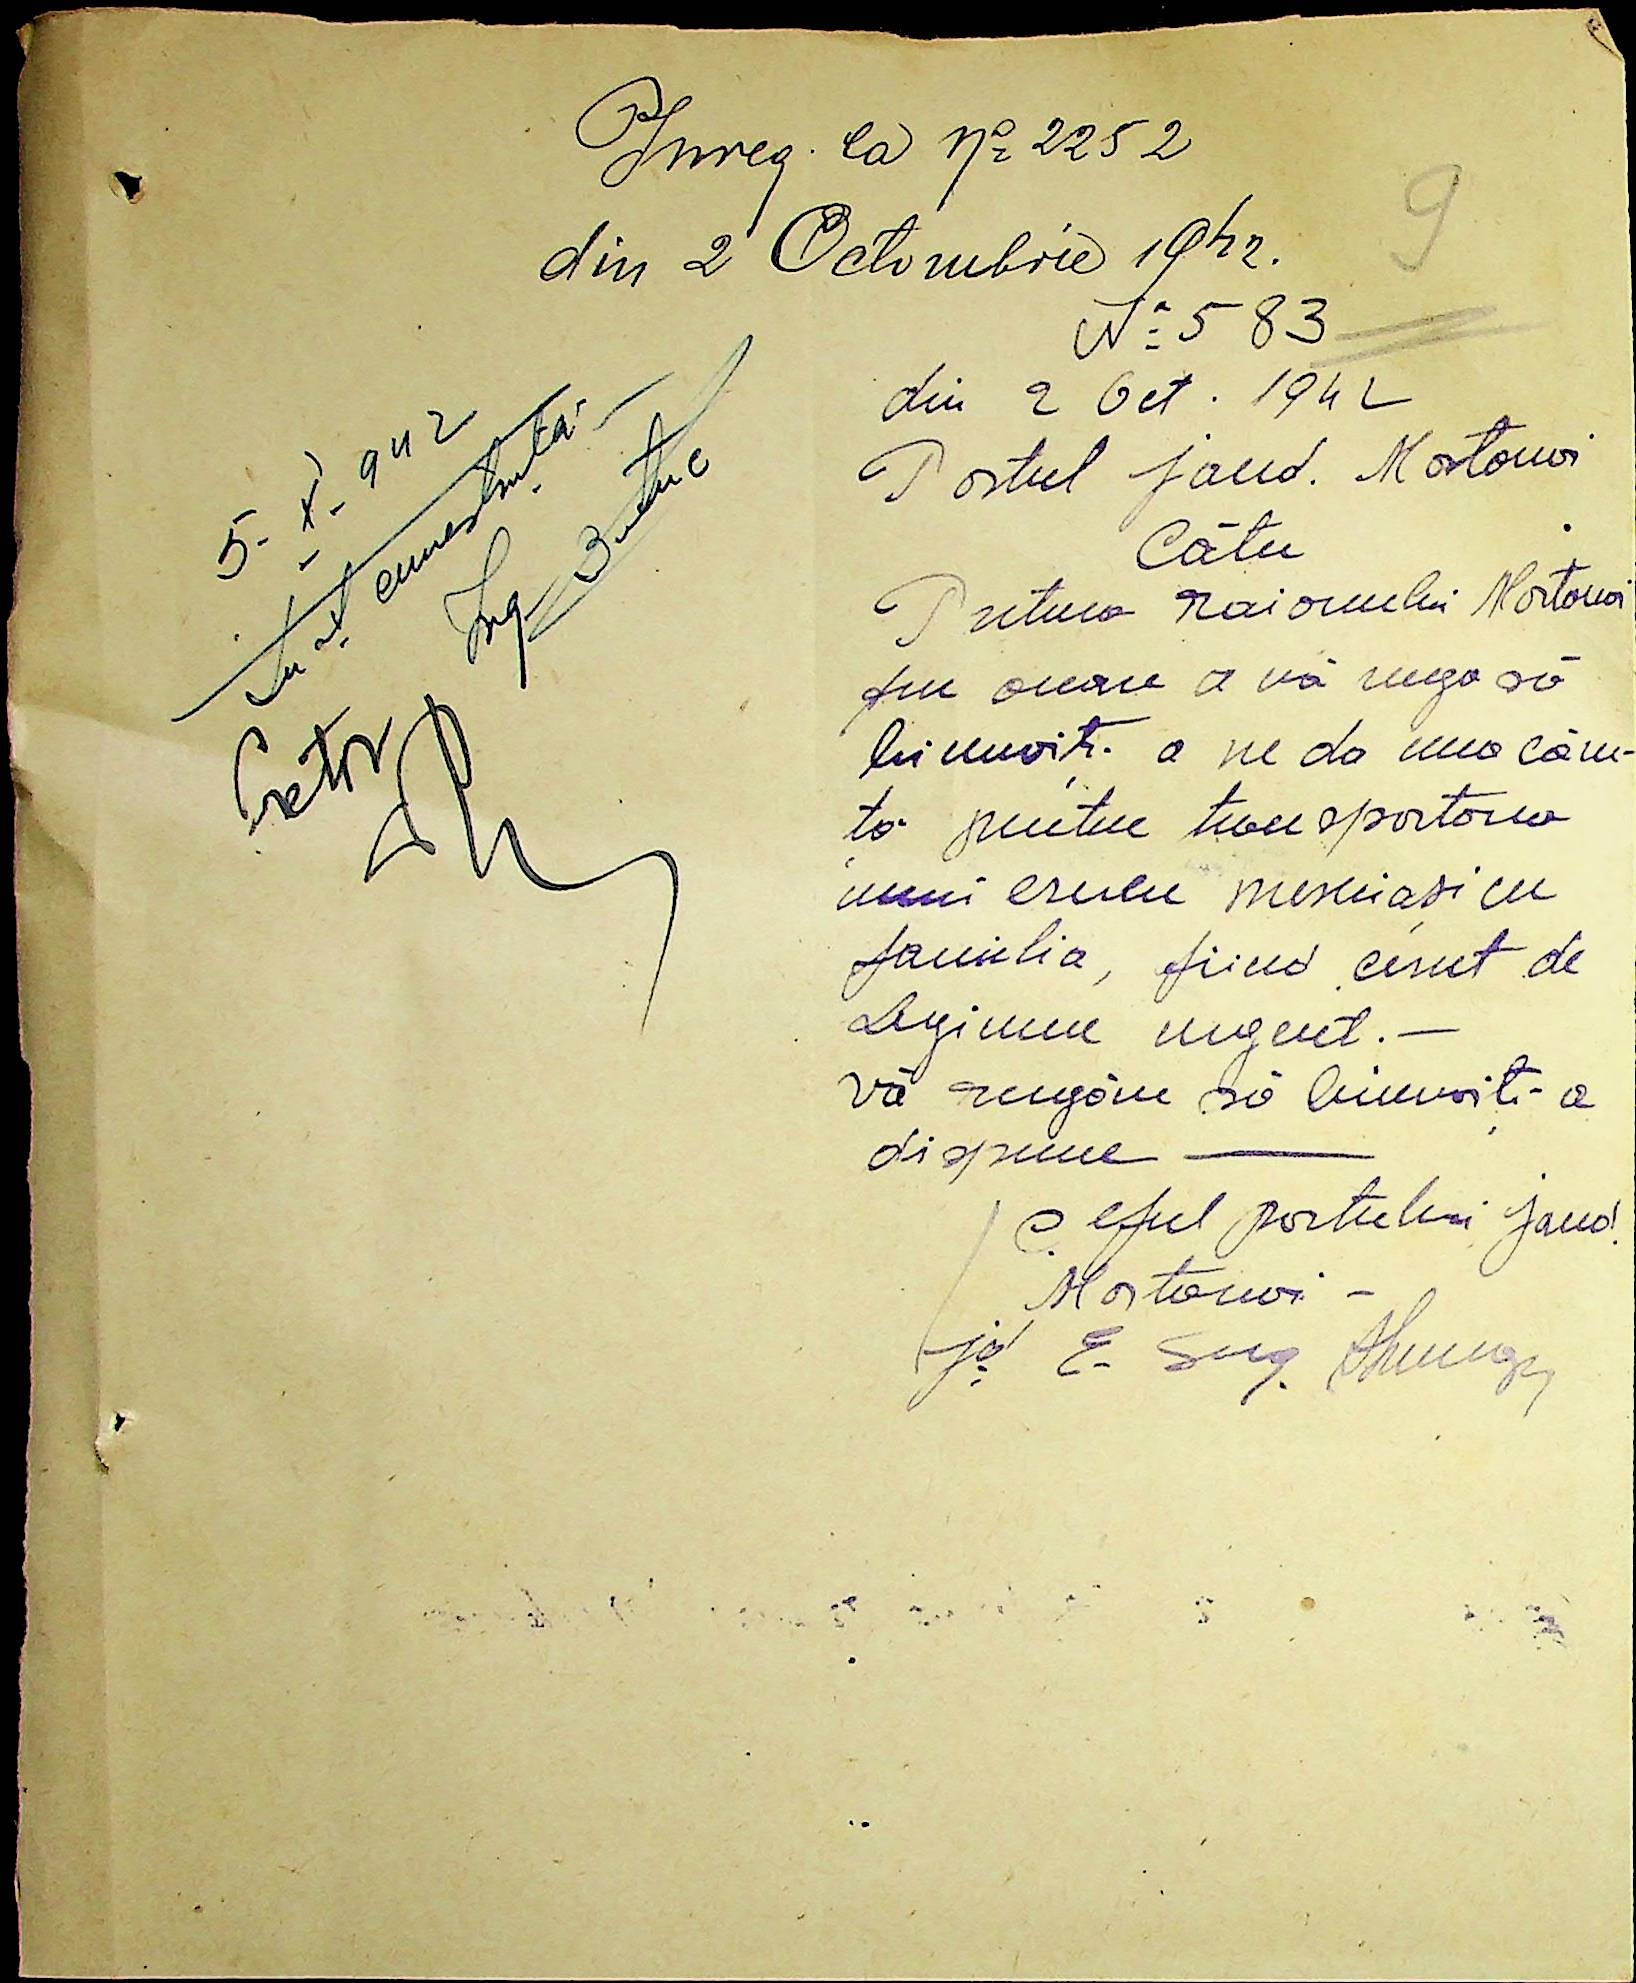 Inreg. la No 2252
din 2 Octombrie 1942.
9
No 583
din 2 Oct. 1942
Postul jand. Mostovoi
Către
Pretura raionului Mostovoi
Am onoare a vă ruga să
binevoiți a ne da una căru-
ță pentru transportarea
unui evreu meseriași cu
familia, fiind cerut de
Legiune urgent. —
Vă rugăm să binevoiți a
dispune —
Șeful postului jand.
Mostovoi -
jd. E. Serg.
5-X-942
Ing.
Pretor